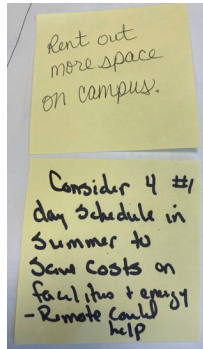 Rent out
more space
on campus.
Consider 4 #1
day schedule in
Summer to
Save Costs on
facilities + energy
- Remote could
help